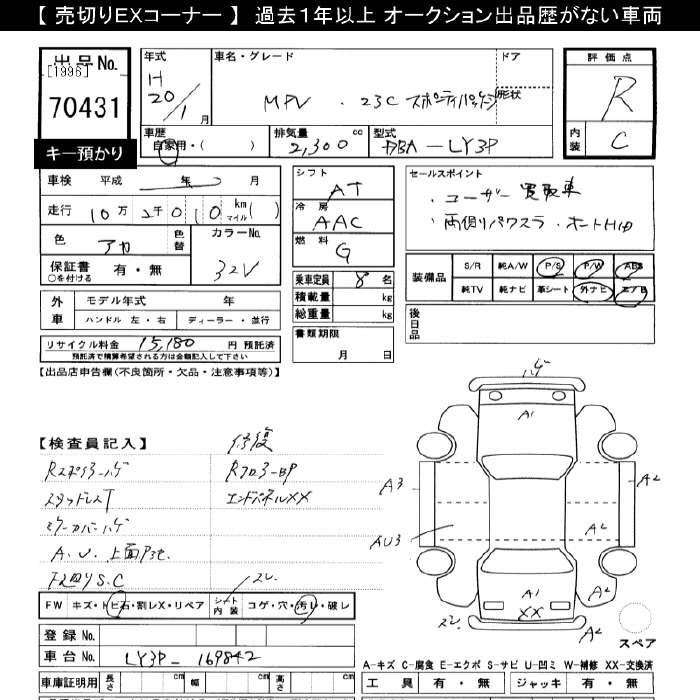 【 売切りEXコーナー 】 過去1年以上 オークション出品歴がない車両
出品No. 年式 車名・グレード ドア 評価点
[1996] H
70431 20/1月 MPV ・ 23C スポーティパッケージ 形状 R
キー預かり 車歴 自家用・( ) 排気量 2,300 cc 型式 DBA-LY3P 内装 C
車検 平成 年 月 シフト AT セールスポイント
走行 10万 2千 0 1 0 km マイル ( ) 冷房 AAC ・ユーザー買取車
色 アカ 色替 カラーNo. 32V 燃料 G ・両側パワスラ・オートHID
保証書 有・無
○を付ける
乗車定員 8 名 装備品 S/R 純A/W P/S P/W ABS
積載量 kg 純TV 純ナビ 革シート 外ナビ エアB
外車 モデル年式 年 総重量 kg 後日品
ハンドル 左・右 ディーラー・並行 書類期限
リサイクル料金 15,180 円 預託済 月 日
預託済で精算希望される方は金額記入して下さい
【出品店申告欄(不良箇所・欠品・注意事項等)】
ハゲ
A1
【検査員記入】 修復
Rスポイラーハゲ Rフロアー BP A3 A2
スタッドレスT エンドパネルXX
ミラーカバーハゲ AU3 A2
A.U.上面
S.C スレ A1 A2
XX
FW キズ・トビ石・割レX・リペア シート内装 コゲ・穴・汚レ・破レ スレ A2
登録No. スペア
車台No. LY3P-169842 A-キズ C-腐食 E-エクボ S-サビ U-凹ミ W-補修 XX-交換済
車庫証明用 長さ cm 幅 cm 高さ cm 工具 有・無 ジャッキ 有・無